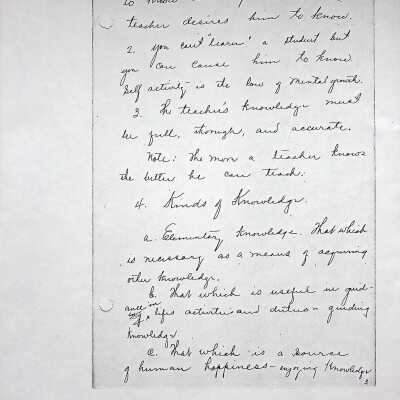 to know
teacher desires him to know.
2. you can't "learn" a student but
you can cause him to know
Self activity is the law of mental growth.
3. The teacher's knowledge must
be full, thorough, and accurate.
Note: The more a teacher knows
the better he can teach:
4. Kinds of Knowledge.
a. Elementary knowledge. That which
is necessary as a means of acquiring
other knowledge.
b. That which is useful in guid-
life's activities and duties guiding
knowledge
c. That which is a source
of human happiness - enjoying knowledge
3